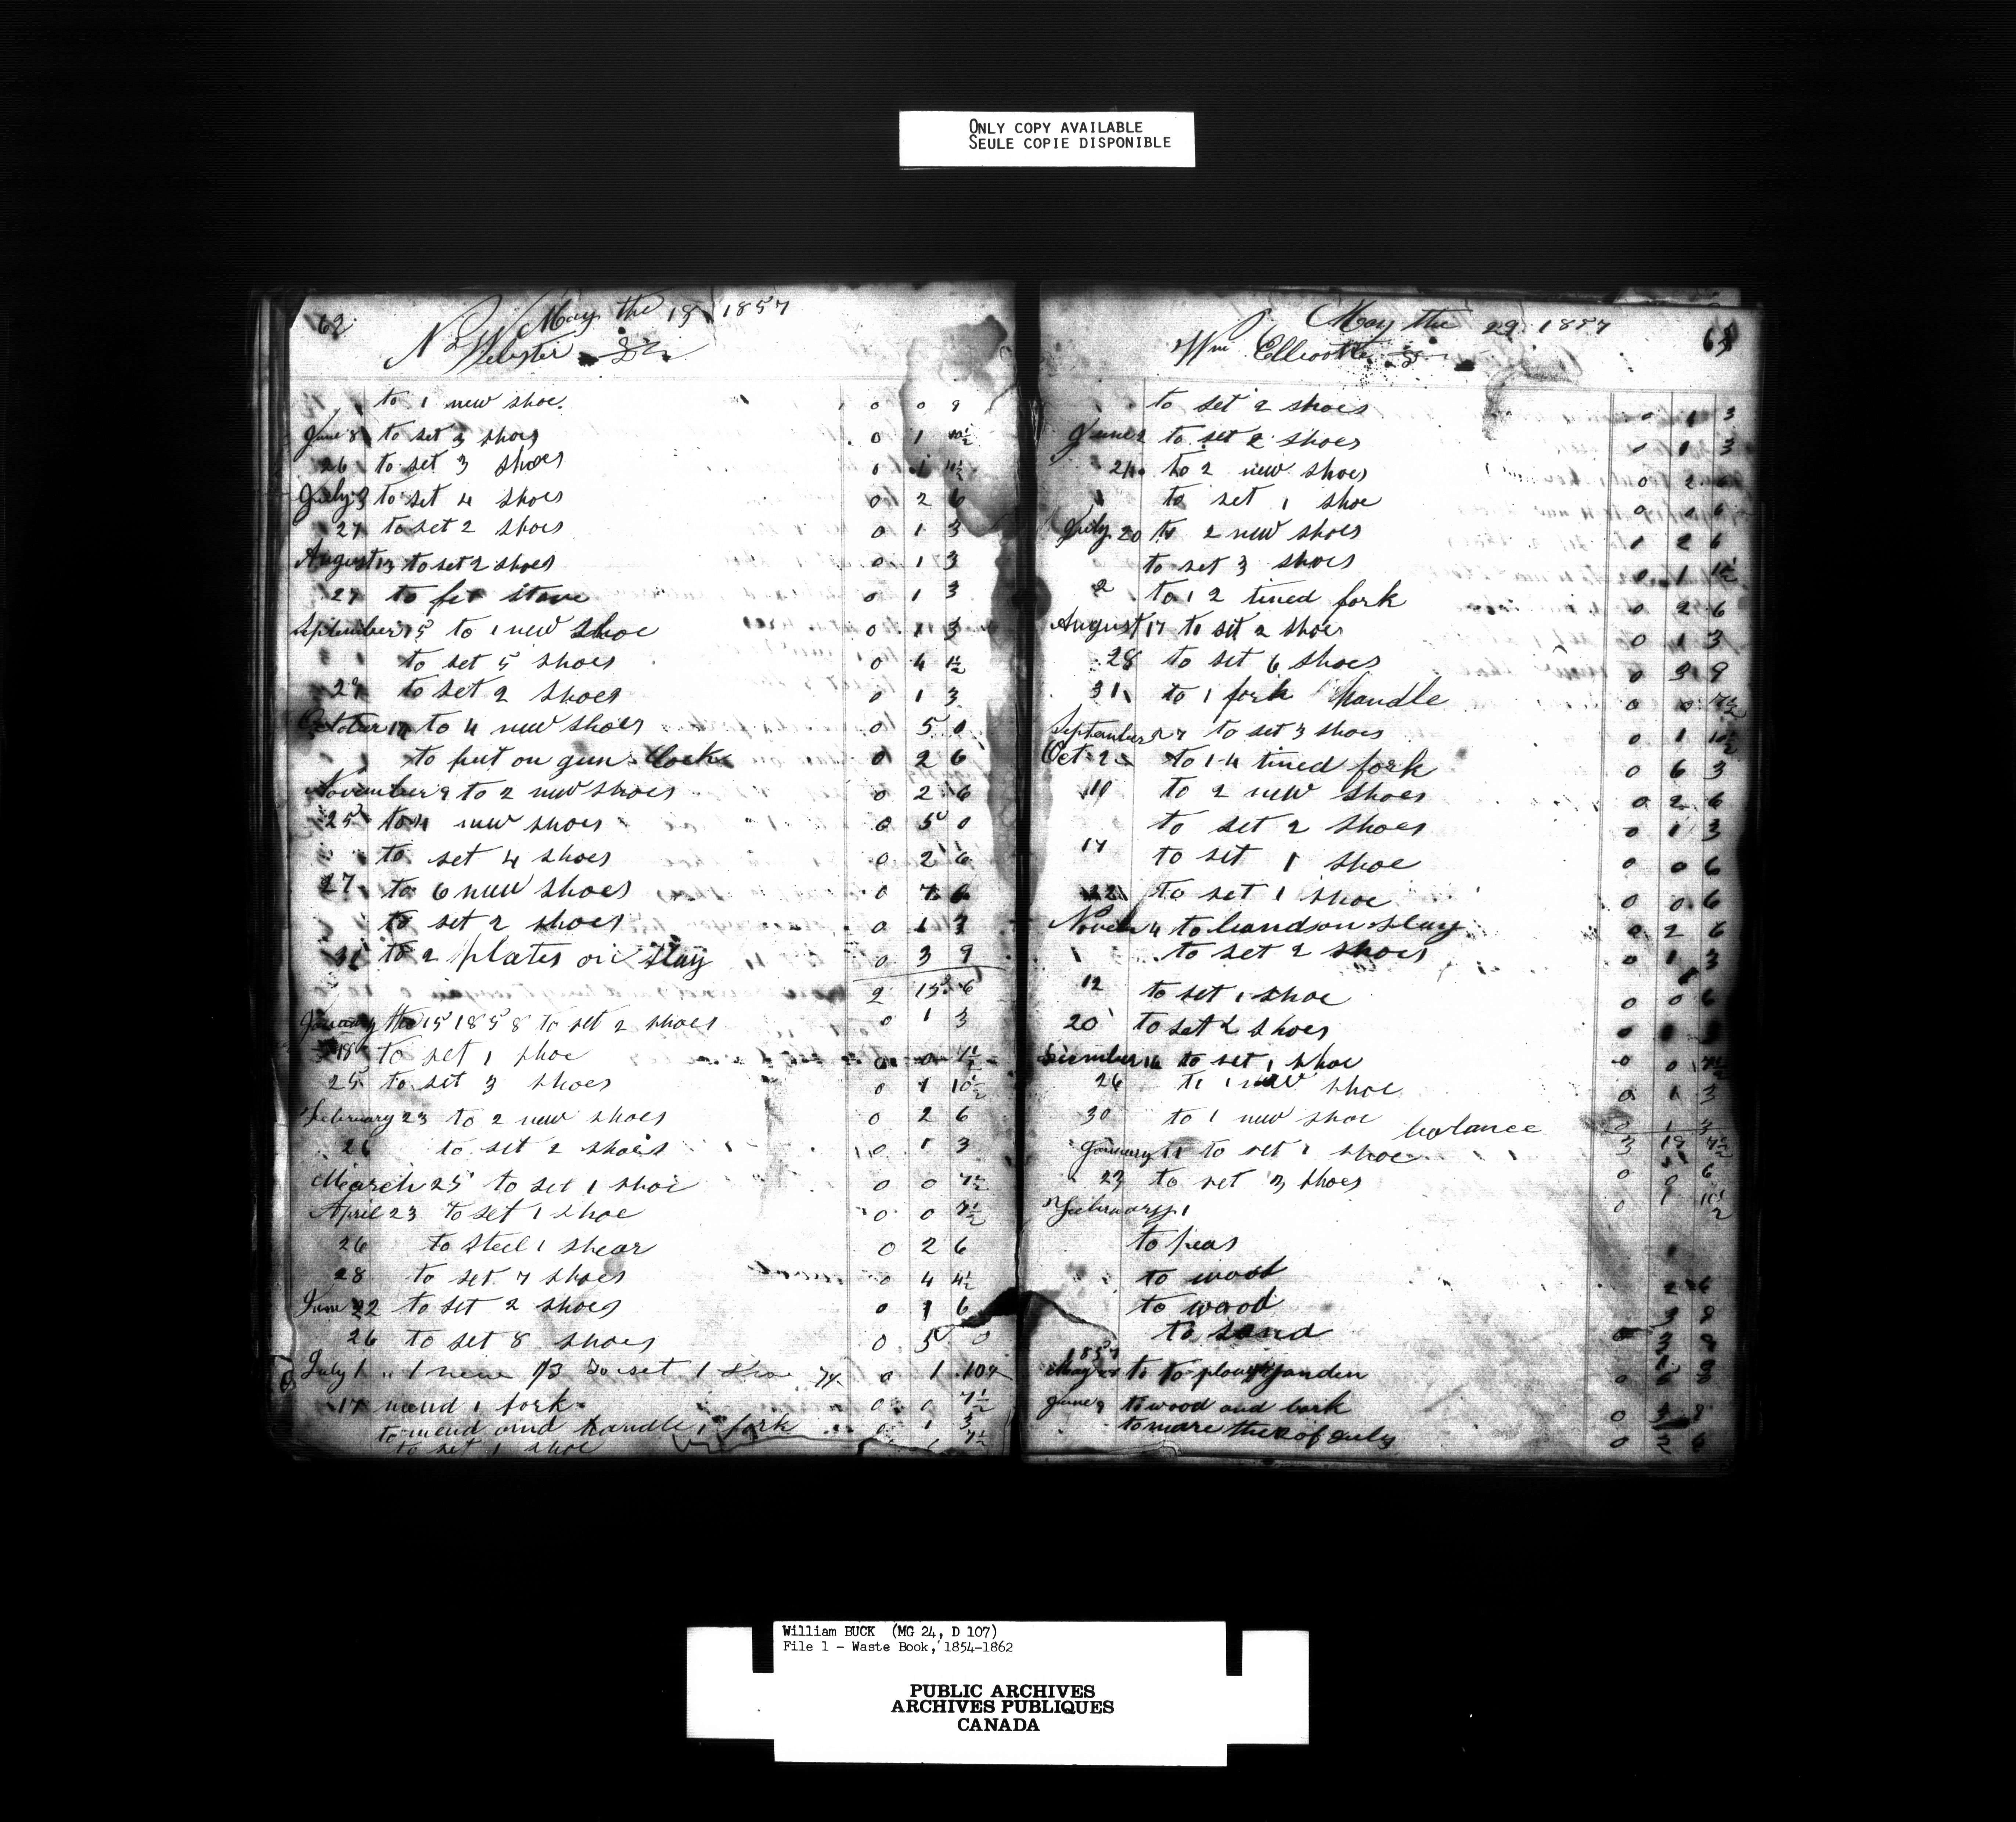 ONLY COPY AVAILABLE
SEULE COPIE DISPONIBLE
62 May the 15 1857
N Webster
to 1 new shoe. 0 0 9
June 8 to set 3 shoes 0 1 10½
26 to set 3 shoes 1
July 3 to set 4 shoes 0 2 6
27 to set 2 shoes 0 1 3
August 13 to set 2 shoes 0 1 3
27 to 1 3
September 15 to 1 new shoe 0 1 3
to set 5 shoes 0 4 1½
29 to set 2 shoes 0 1 3
October to 4 new shoes 0 5 0
to put on gun Lock 0 2 6
November 9 to 2 new shoes 0 2 6
25 to 4 new shoes 0 5 0
to set 4 shoes 0 2 6
27 to 6 new shoes 0 7 6
to set 2 shoes 0 1 3
31 to 2 plates on slay 0 3 9
2 15 6
January the 15 1858 to set 2 shoes 0 1 3
18 to set 1 shoe 0 0 7½
25 to set 3 shoes 0 1 10½
February 23 to 2 new shoes 0 2 6
26 to set 2 shoes 0 1 3
March 25 to set 1 shoe 0 0 7½
April 23 to set 1 shoe 0 0 7½
26 to steel 1 shear 0 2 6
28 to set 7 shoes 0 4 4½
June 22 to set 2 shoes 0 1 6
26 to set 8 shoes 0 5 0
July 1 " 1 new 1/3 To set 1 shoe 7½ 0 1 10½
17 mend 1 fork 0 0 7½
to mend and handle 1 fork 0 1 3
to set 1 shoe 7½
May the 29 1857 63
Wm Ellicott
to set 2 shoes 0 1 3
June 2 to set 2 shoes 0 1 3
24 to 2 new shoes 0 2 6
to set 1 shoe 0 0 6
July 20 to 2 new shoes 2 6
to set 3 shoes 0 1
2 to 1 2 tined fork 0 2 6
August 17 to set 2 shoes 0 1 3
28 to set 6 shoes 0 3 9
31 to 1 fork handle 0 0 7½
September 27 to set 3 shoes 0 1 10½
Oct 2 to 1 4 tined fork 0 6 3
10 to 2 new shoes 0 2 6
to set 2 shoes 0 1 3
17 to set 1 shoe 0 0 6
22 to set 1 shoe 0 0 6
Novem 4 to bands on slay 0 2 6
to set 2 shoes 0 1 3
12 to set 1 shoe 0 0 6
20 to set 2 shoes 0
December 16 to set 1 shoe 0 0 7½
26 to 1 new shoe 0 1 3
30 to 1 new shoe 0 1 3
balance 3 19 7½
January 11 to set 1 shoe 0 0 6
23 to set 3 shoes 0 1 10½
February 1
to peas
to wood 2 6
to wood 3 9
to sand
1857
May to to plow garden
June 9 to wood and bark 0
to mare the 2 of July 0 2 6
William BUCK (MG 24, D 107)
File 1 - Waste Book, 1854-1862
PUBLIC ARCHIVES
ARCHIVES PUBLIQUES
CANADA